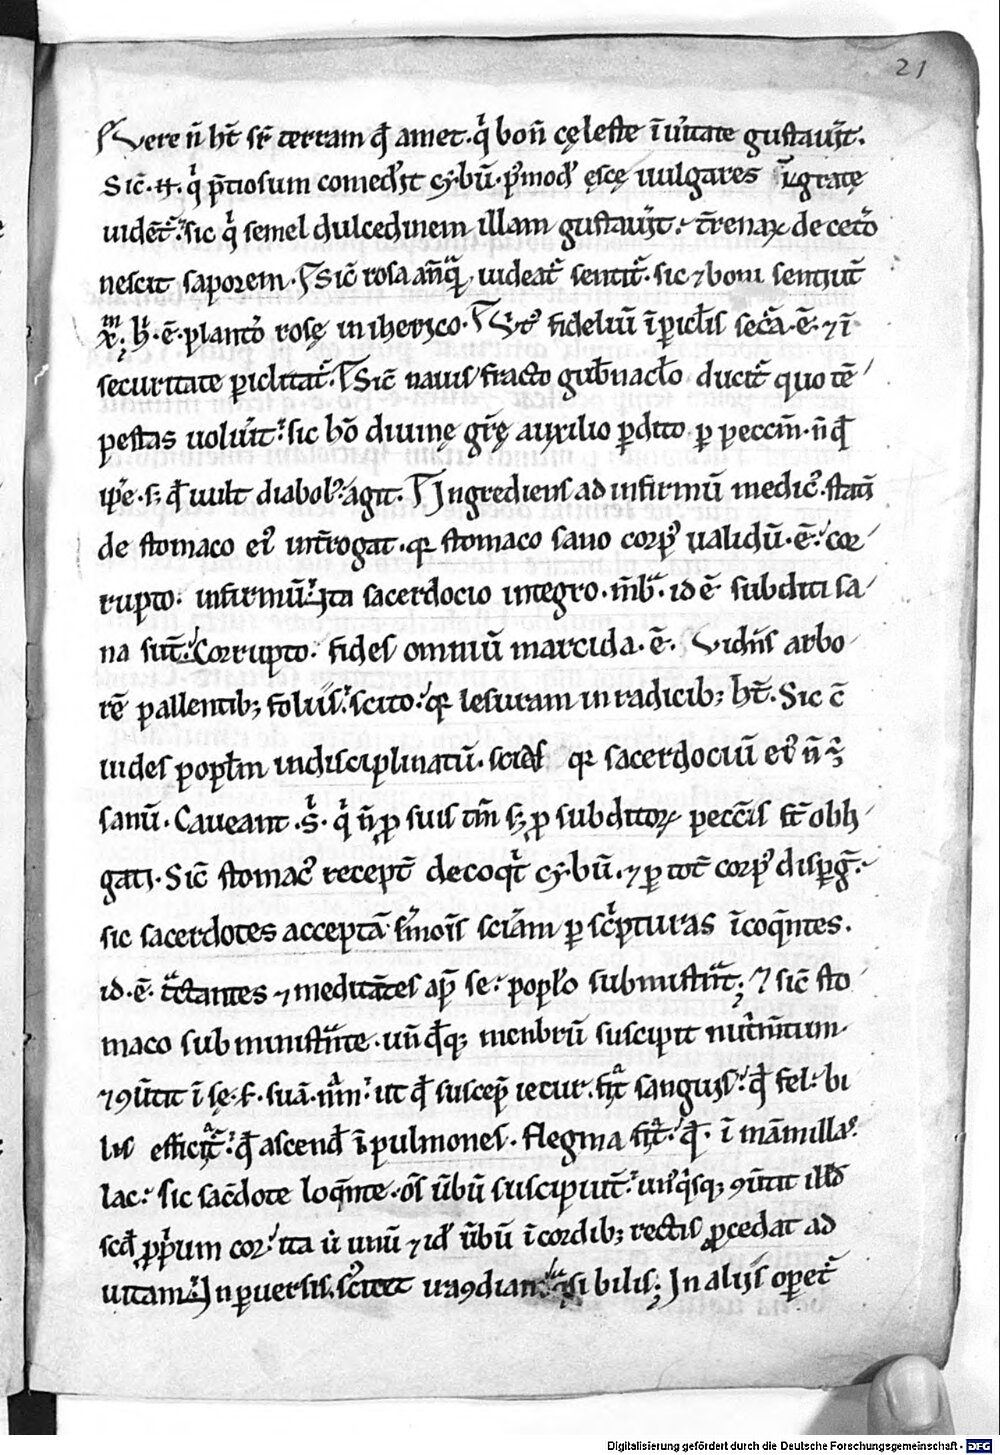 21
Vere ñ hr̄ sr̄ terram qđ amet. q̇ bon̄ cęleste ī ũitate gustauit.
Sic̄. q̇ p̄tiosum comedit cybū. p̱mod' escę uulgares ingratę
uidēt̃. sic q̇ semel dulcedinem illam gustauit. t̃renax de cet̃o
nescit saporem. Sic̄ rosa añq̃ uideat̃ sentit̃. sic ⁊ boni sentiut̃
x̄. h̄. ē. plantõ rosę in iherico. fideliū ī piclis secᷓa. ē. ⁊ ī
securitate piclitat̃. Sic̄ nauis fracto gub̄naclo ducit̃ quo tē
pestas uolũit. sic hō diuinę gr̄ę auxilio p̱dito p̱ peccm̄. ñ qđ
ip̄e. s; qđ uult diabol᷒. agit. Ingrediens ad infirmū medic᷒. statī
de stomaco ei᷒ int̃rogat. qꝛ stomaco sano corp᷒ ualidū. ē. cor
rupto. infirmū. Ita sacerdocio integro. m̄b̃. id ē subditi sa
na sūt. Corrupto. fides omniū marcida. ē. Vidn̄s arbo
rē pallentib; foliis. scito. qꝛ lesuram in radicib; hr̄. Sic c̄
uides popl̄m indisciplinatū. scias qꝛ sacerdociū ei᷒ ñ ē
sanū. Caueant. q̇ ñ ꝓ suis tm̄ s; ꝓ subditoꝝ pecc̄is st̄ obli
gati. Sic̄ stomac᷒ recept̄ decoqt̃ cybū. ⁊ p̱ tot̄ corp᷒ disp̱g̃.
sic sacerdotes acceptā sermōis sciam p̱ sc̃pturas īcoq̄ntes.
id. ē. tᷓctantes ⁊ meditātes ap̄ se. popl̄o subministrᷓt; ⁊ sic̄ sto
maco subministrᷓnte. un̄qđq; menbrū suscipit nut̃m̄tum
⁊ ꝯũtit ī sę. s. suā. nām. ut qđ suscep̄ iecur. fit sanguis. qđ fel. bi
lis efficit̃. qđ ascend̄ ī pulmones. flegma fit. qđ. ī māmillas
lac. sic sac̄dote loq̄nte. ōs ũbū suscipiut̃. un᷒qsq; ꝯũtit illud
scđ p̱p̃um cor. ita ut unū ⁊ id' ũbū ī cordib; rectis ꝓcedat ad
uitam. In puersis. sciteet iracꝯdiam q̃si bilis; In aliis opet̃